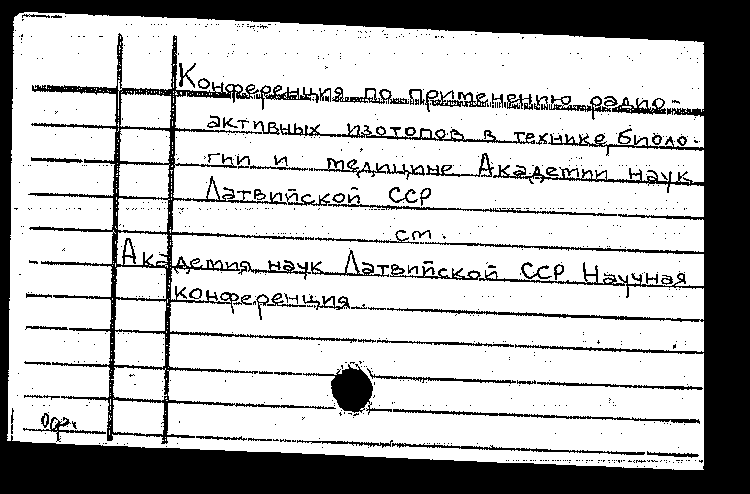 Конференция по применению радио-
активных изотопов в технике, биоло-
гии и медицине Академии наук
Латвийской ССР
см.
Академия наук Латвийской ССР Научная
конференция.